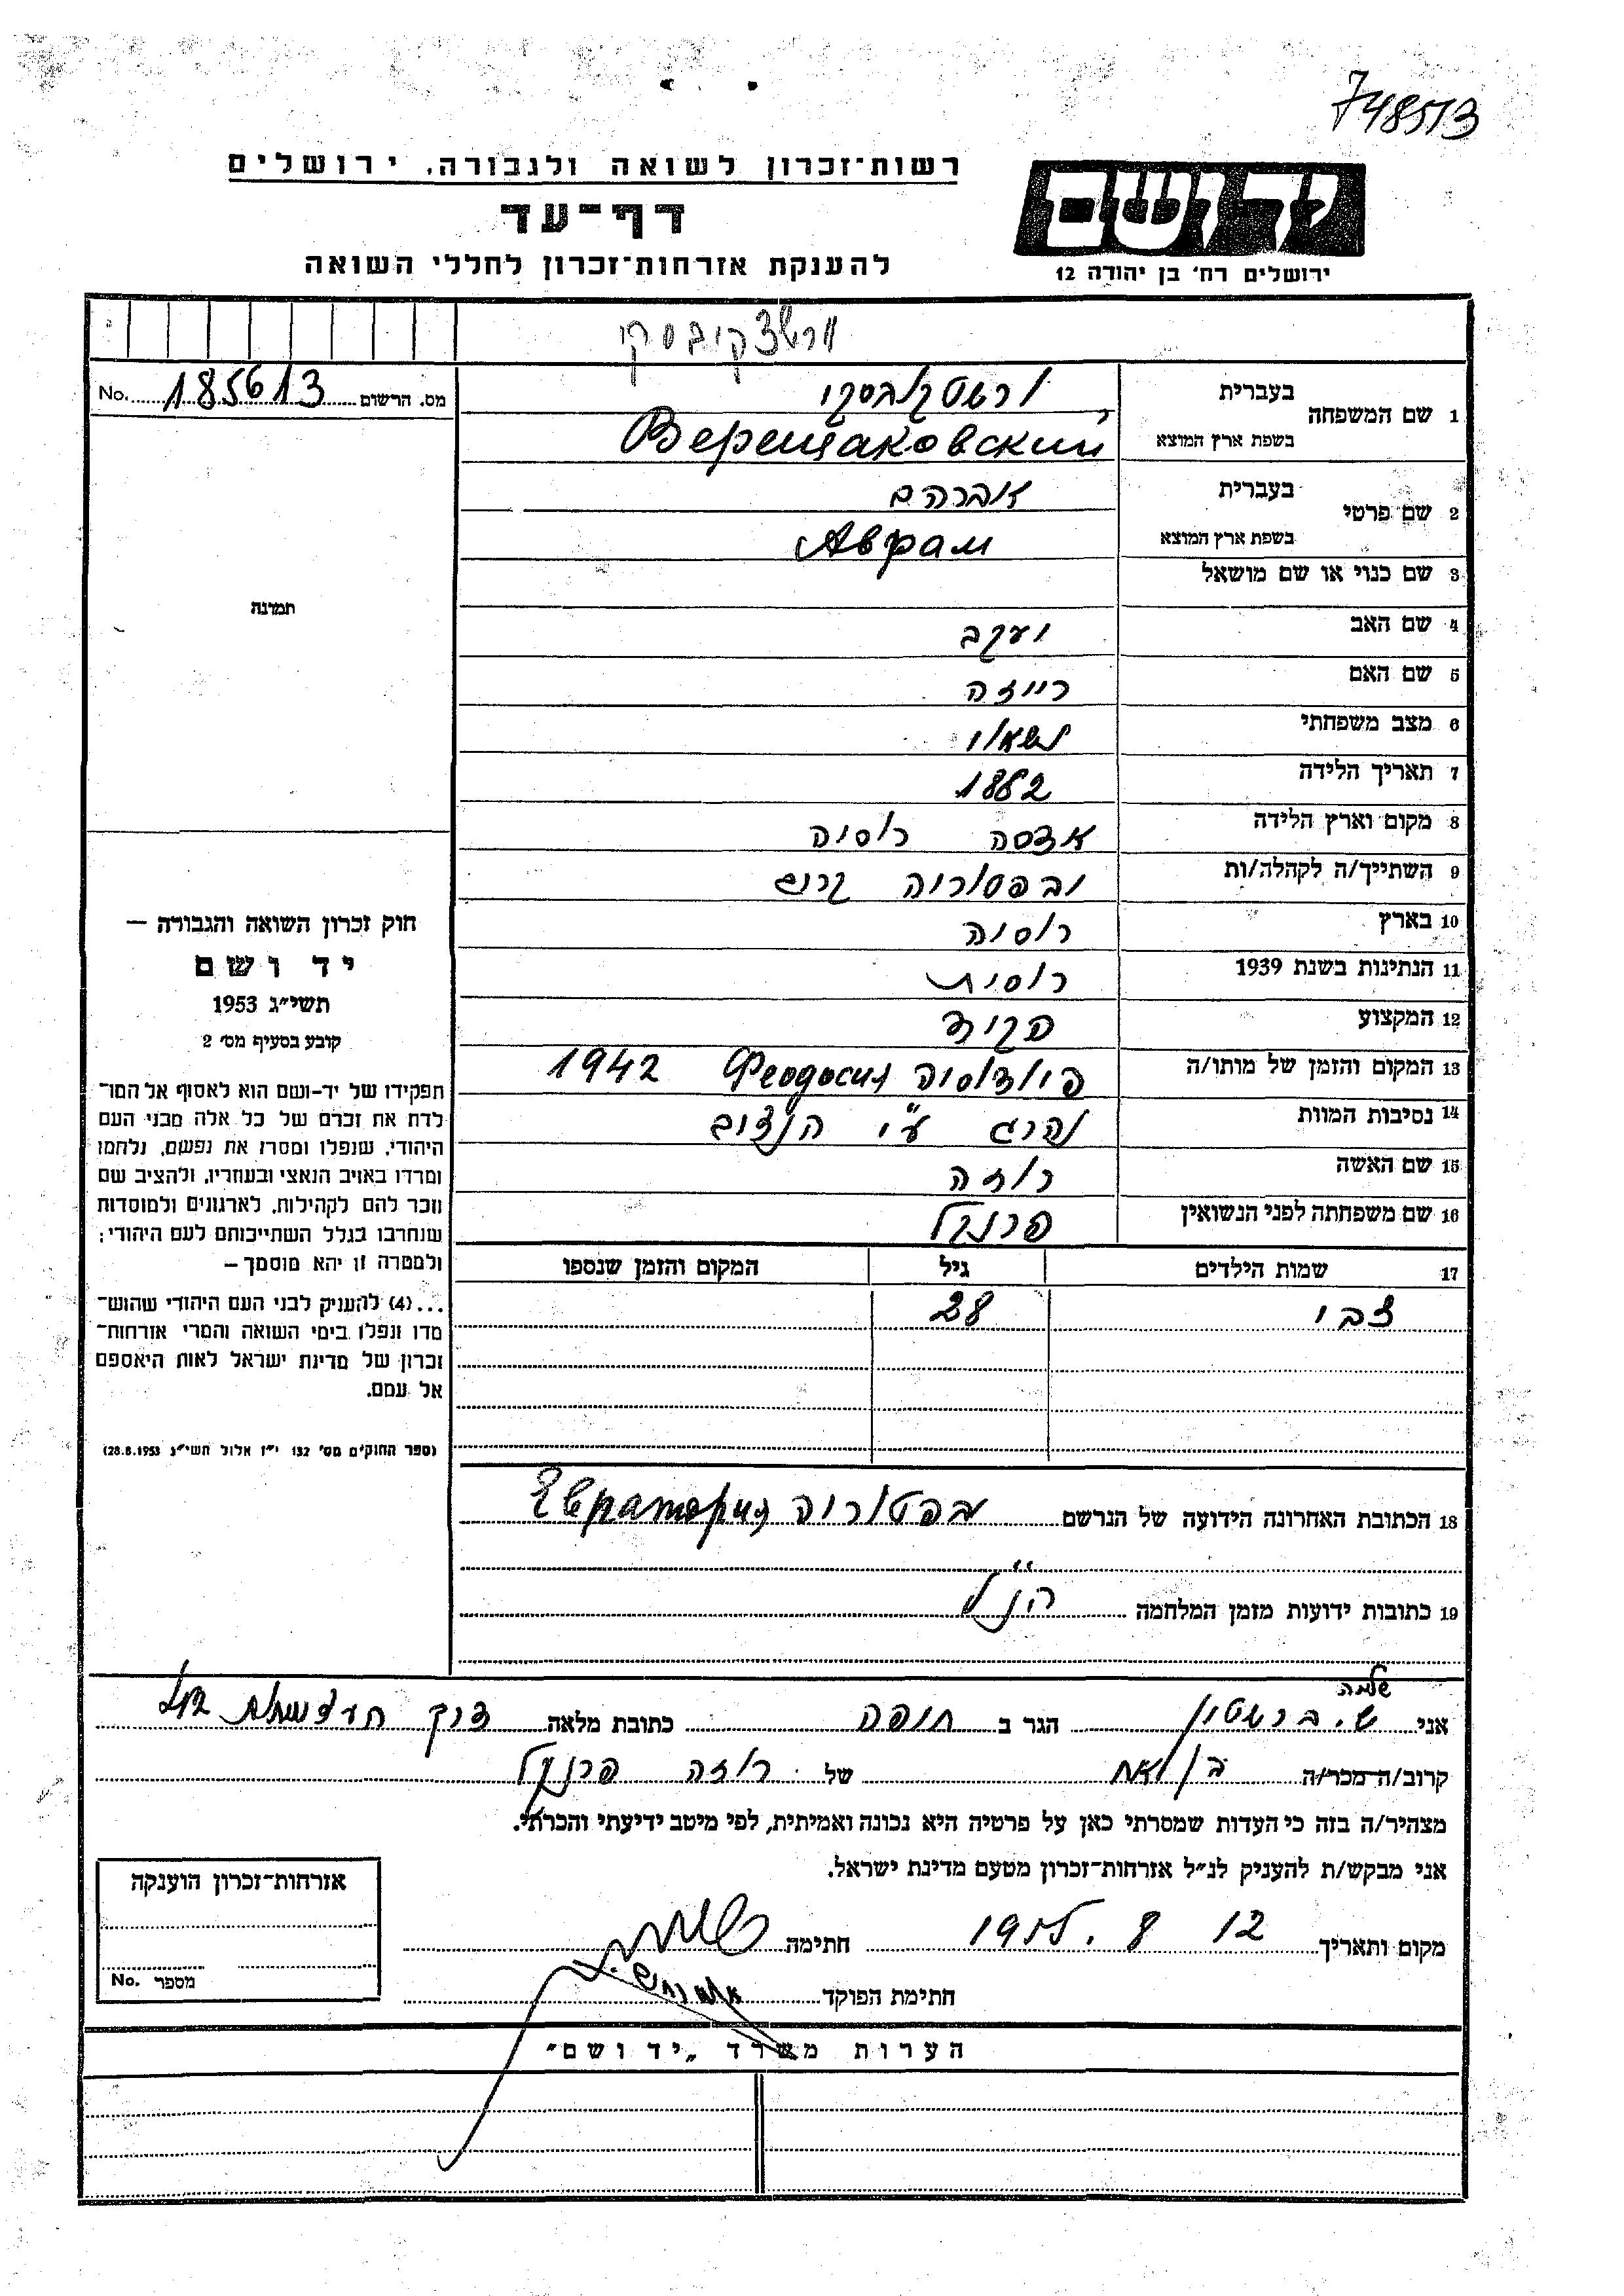 748513
רשות־זכרון לשואה ולגבורה, ירושלים
יד ושם
דף־עד
להענקת אזרחות־זכרון לחללי השואה
ירושלים רח' בן יהודה 12
ורשצקובסקי
No. 185613 מס. הרשום
1 שם המשפחה
בעברית
בשפת ארץ המוצא
Верещаковский
2 שם פרטי
בעברית אברהם
בשפת ארץ המוצא Аврам
3 שם כנוי או שם מושאל
4 שם האב יעקב
5 שם האם רייזה
6 מצב משפחתי נשאוי
7 תאריך הלידה 1882
8 מקום וארץ הלידה אדסה רוסיה
9 השתייך/ה לקהלה/ות יבפטוריה קרים
10 בארץ רוסיה
11 הנתינות בשנת 1939 רוסית
12 המקצוע פקיד
13 המקום והזמן של מותו/ה פיודוסיה Феодосия 1942
14 נסיבות המוות נהרג ע"י הנצים
15 שם האשה רוזה
16 שם משפחתה לפני הנשואין פרנקל
17 שמות הילדים גיל המקום והזמן שנספו
צבי 28
תמונה
חוק זכרון השואה והגבורה —
יד ושם
תשי״ג 1953
קובע בסעיף מס׳ 2
תפקידו של יד-ושם הוא לאסוף אל המו־
לדת את זכרם של כל אלה מבני העם
היהודי, שנפלו ומסרו את נפשם, נלחמו
ומרדו באויב הנאצי ובעוזריו, ולהציב שם
וזכר להם לקהילות, לארגונים ולמוסדות
שנחרבו בגלל השתייכותם לעם היהודי;
ולמטרה זו יהא מוסמך —
...(4) להעניק לבני העם היהודי שהוש־
מדו ונפלו בימי השואה והמרי אזרחות־
זכרון של מדינת ישראל לאות היאספם
אל עמם.
(ספר החוקים מס׳ 132 י״ז אלול תשי״ג 28.8.1953)
18 הכתובת האחרונה הידועה של הנרשם Евпатория
19 כתובות ידועות מזמן המלחמה הנ"ל
שלמה
אני ש. ברשטין הגר ב חיפה כתובת מלאה דרך
קרוב/ה מכר/ה בן אח של רוזה פרנקל
מצהיר/ה בזה כי העדות שמסרתי כאן על פרטיה היא נכונה ואמיתית, לפי מיטב ידיעתי והכרתי.
אני מבקש/ת להעניק לנ״ל אזרחות־זכרון מטעם מדינת ישראל.
מקום ותאריך 12 8 .1955 חתימה
חתימת הפוקד
אזרחות־זכרון הוענקה
מספר No.
הערות משרד „יד ושם״